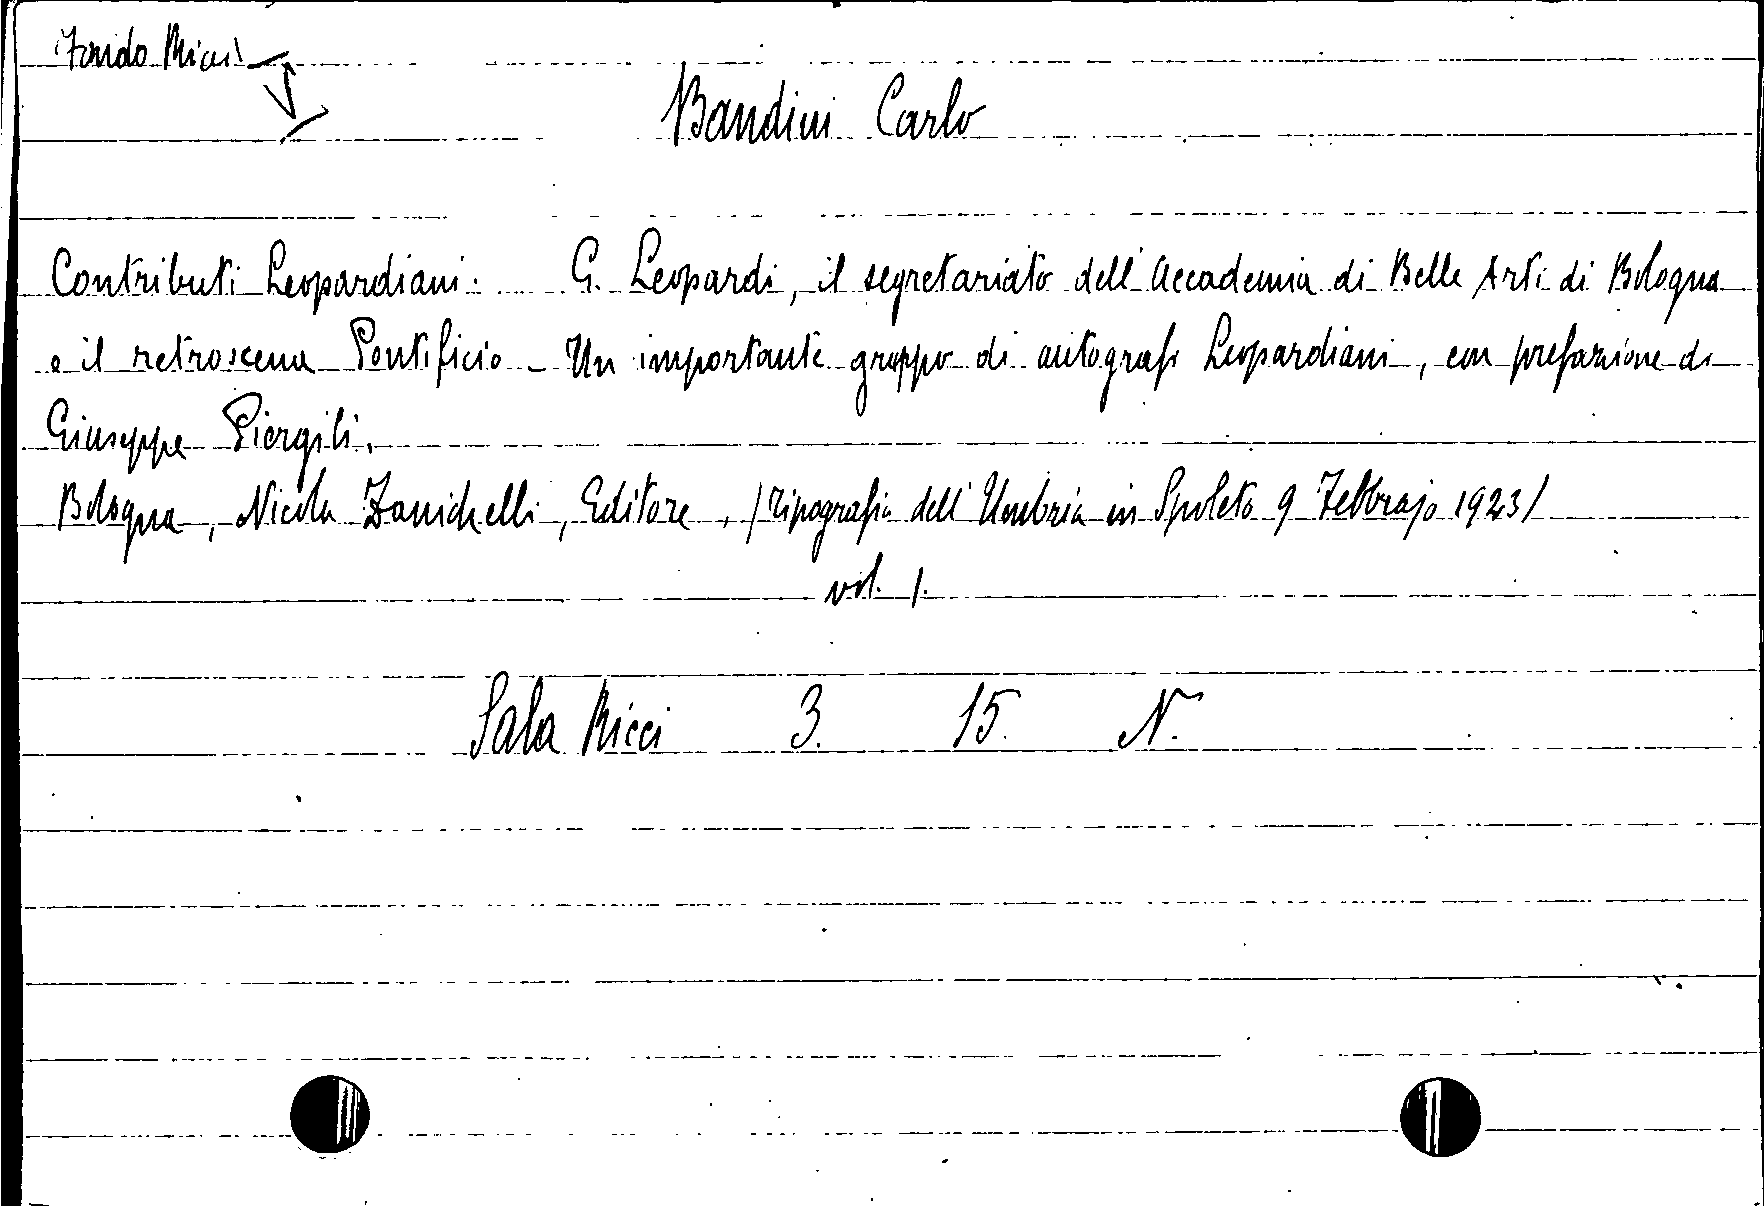 Fondo Ricci
Bandini Carlo
Contributi Leopardiani. G. Leopardi, il segretariato dell'Accademia di Belle Arti di Bologna
e il retroscena Pontificio - Un importante gruppo di autografi Leopardiani, con prefazione di
Giuseppe Piergili.
Bologna, Nicola Zanichelli, Editore, /Tipografia dell'Umbria in Spoleto 9 Febbrajo 1923/
vol. 1.
Sala Ricci 3. 15. N.